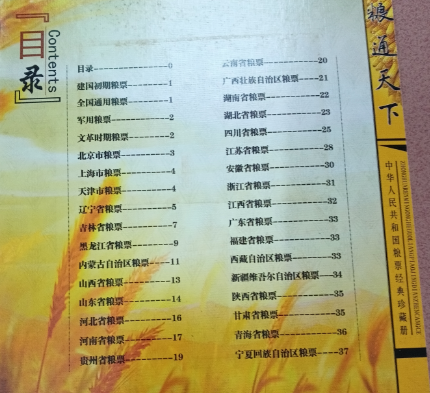 『目录』
Contents
目录--------------------0
建国初期粮票----------1
全国通用粮票----------1
军用粮票---------------2
文革时期粮票----------2
北京市粮票------------3
上海市粮票------------4
天津市粮票------------4
辽宁省粮票------------5
吉林省粮票------------7
黑龙江省粮票----------9
内蒙古自治区粮票----11
山西省粮票-----------13
山东省粮票-----------14
河北省粮票-----------16
河南省粮票-----------17
贵州省粮票-----------19
云南省粮票-----------20
广西壮族自治区粮票---21
湖南省粮票-----------22
湖北省粮票-----------23
四川省粮票-----------25
江苏省粮票-----------28
安徽省粮票-----------30
浙江省粮票-----------31
江西省粮票-----------32
广东省粮票-----------33
福建省粮票-----------33
西藏自治区粮票------33
新疆维吾尔自治区粮票---34
陕西省粮票-----------35
甘肃省粮票-----------35
青海省粮票-----------36
宁夏回族自治区粮票-----37
粮通天下
中华人民共和国粮票经典珍藏册